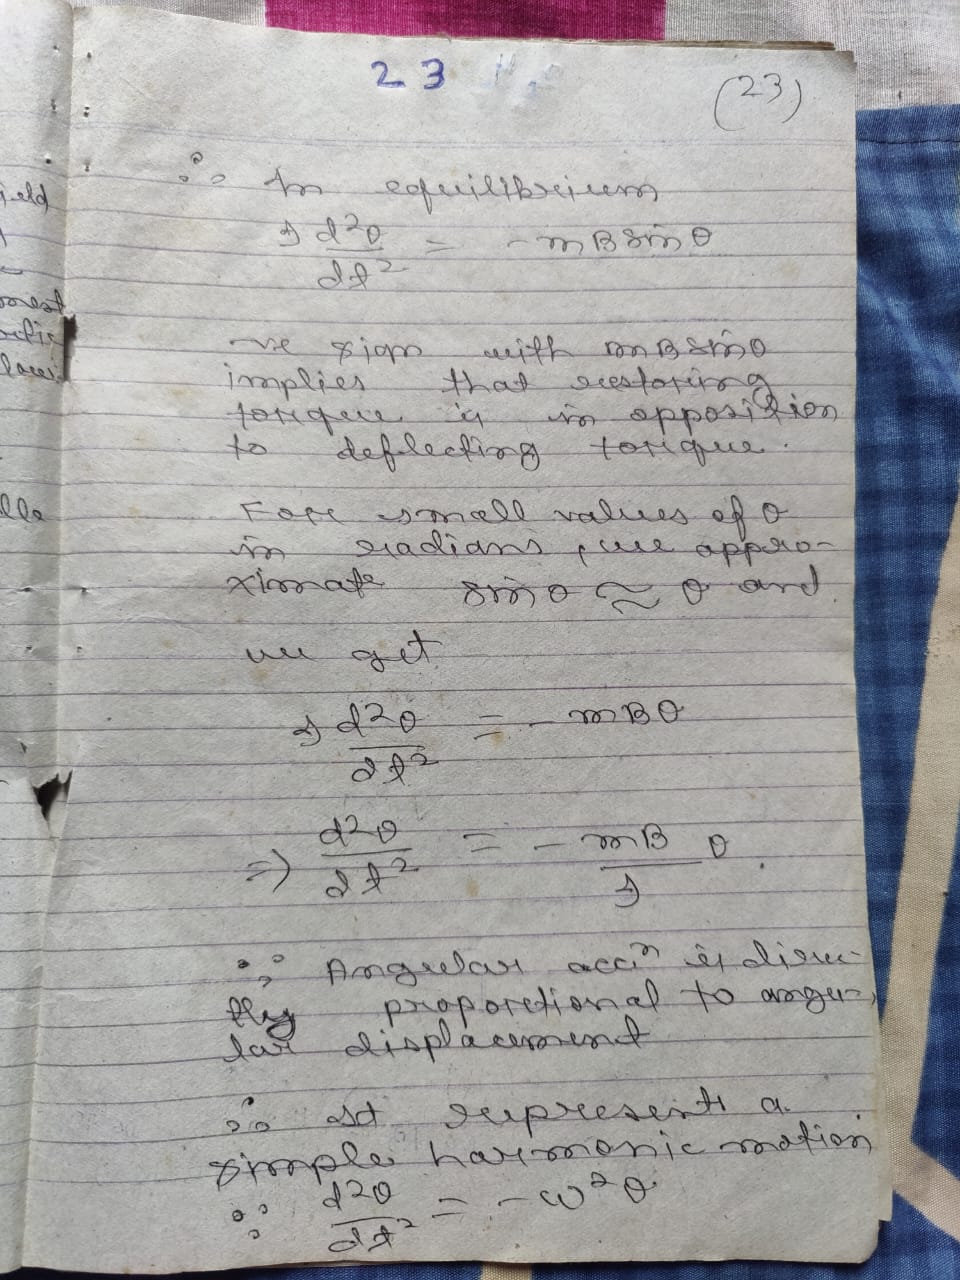 23
(23)
∴ In equilibrium
I d²θ/dt² = - mB sinθ
-ve sign with mB sinθ
implies that restoring
torque is in opposition
to deflecting torque.
For small values of θ
in radians, we appro-
ximate sinθ ≈ θ and
we get
I d²θ/dt² = - mBθ
⇒ d²θ/dt² = - mB/I θ.
∵ Angular accⁿ is direc-
tly proportional to angu-
lar displacement
∴ It represents a
simple harmonic motion
∵ d²θ/dt² = - ω²θ
ield